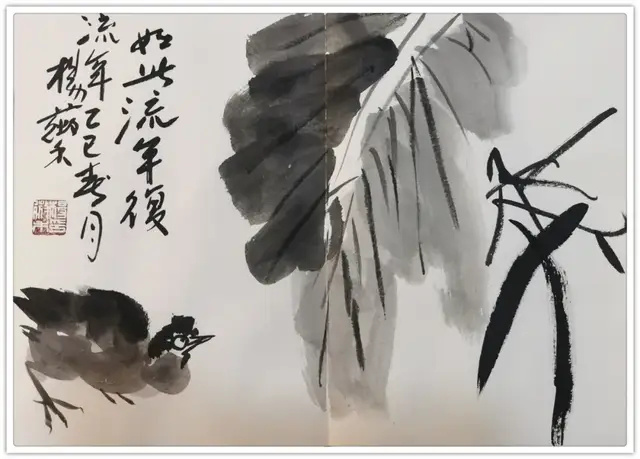 如此流年復
流年乙巳春月
楊